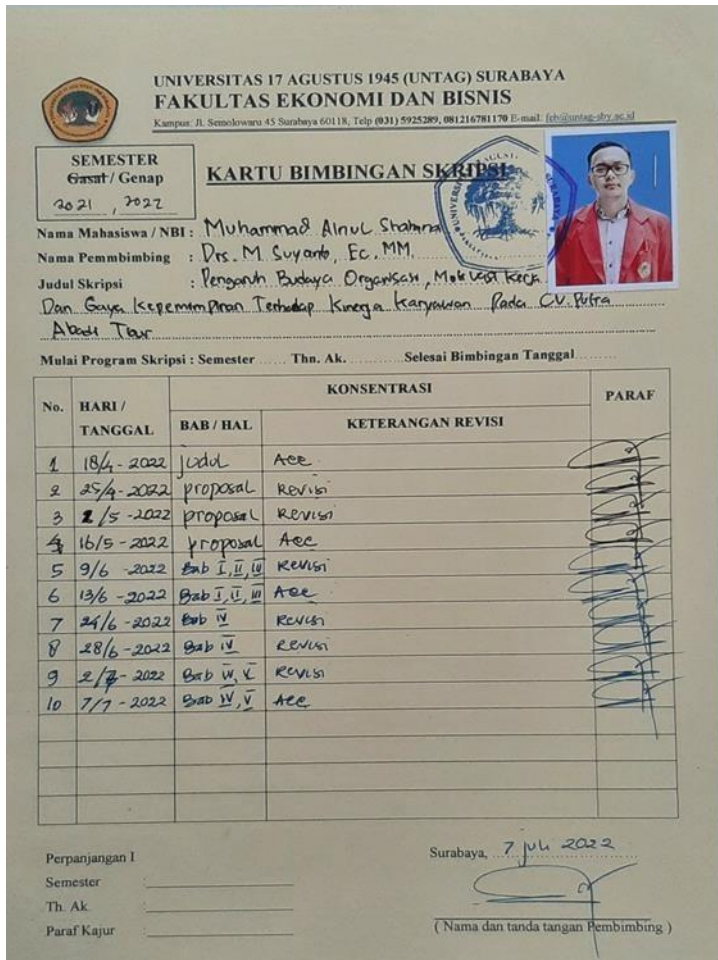 UNIVERSITAS 17 AGUSTUS 1945 (UNTAG) SURABAYA
FAKULTAS EKONOMI DAN BISNIS
Kampus: Jl. Semolowaru 45 Surabaya 60118, Telp (031) 5925289, 081216781170 E-mail: feb@untag-sby.ac.id
SEMESTER
Gasal / Genap
2021 , 2022
KARTU BIMBINGAN SKRIPSI
Nama Mahasiswa / NBI : Muhammad Ainul
Nama Pemmbimbing : Drs. M. Suyanto, Ec. MM.
Judul Skripsi : Pengaruh Budaya Organisasi, Motivasi Kerja
Dan Gaya Kepemimpinan Terhadap Kinerja Karyawan Pada CV. Putra
Abadi
Mulai Program Skripsi : Semester ...... Thn. Ak. ............ Selesai Bimbingan Tanggal..........
No. HARI / TANGGAL KONSENTRASI PARAF
BAB / HAL KETERANGAN REVISI
1 18/4 - 2022 judul Acc
2 25/4 - 2022 proposal Revisi
3 2/5 - 2022 proposal Revisi
4 16/5 - 2022 proposal Acc
5 9/6 - 2022 Bab I, II, III Revisi
6 13/6 - 2022 Bab I, II, III Acc
7 24/6 - 2022 Bab IV Revisi
8 28/6 - 2022 Bab IV Revisi
9 2/7 - 2022 Bab IV, V Revisi
10 7/7 - 2022 Bab IV, V Acc
Perpanjangan I
Semester :
Th. Ak. :
Paraf Kajur :
Surabaya, 7 juli 2022
( Nama dan tanda tangan Pembimbing )